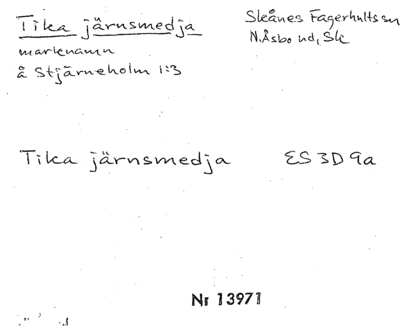 Tika järnsmedja
marknamn
å Stjärneholm 1:3
Skånes Fagerhults sn
N. Åsbo hd, Sk
Tika järnsmedja ES 3D 9a
Nr 13971